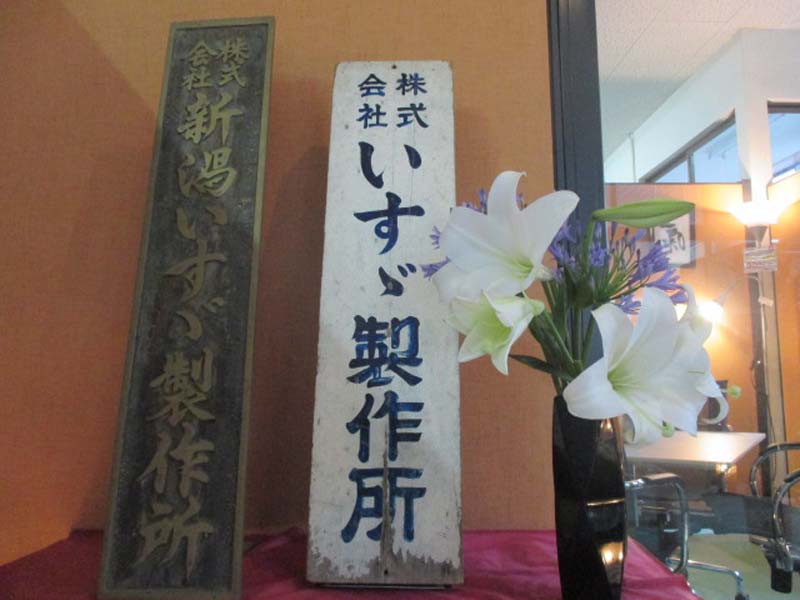 株式会社 新潟いすゞ製作所
株式会社 いすゞ製作所